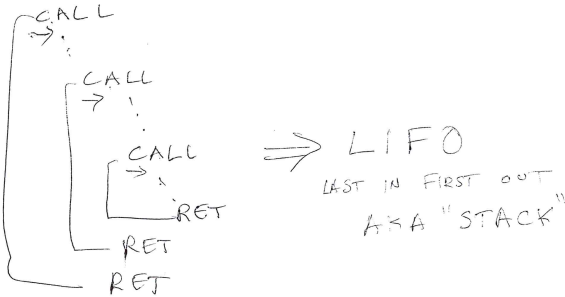 CALL
CALL
CALL
RET
RET
RET
⇒ LIFO
LAST IN FIRST OUT
AKA "STACK"